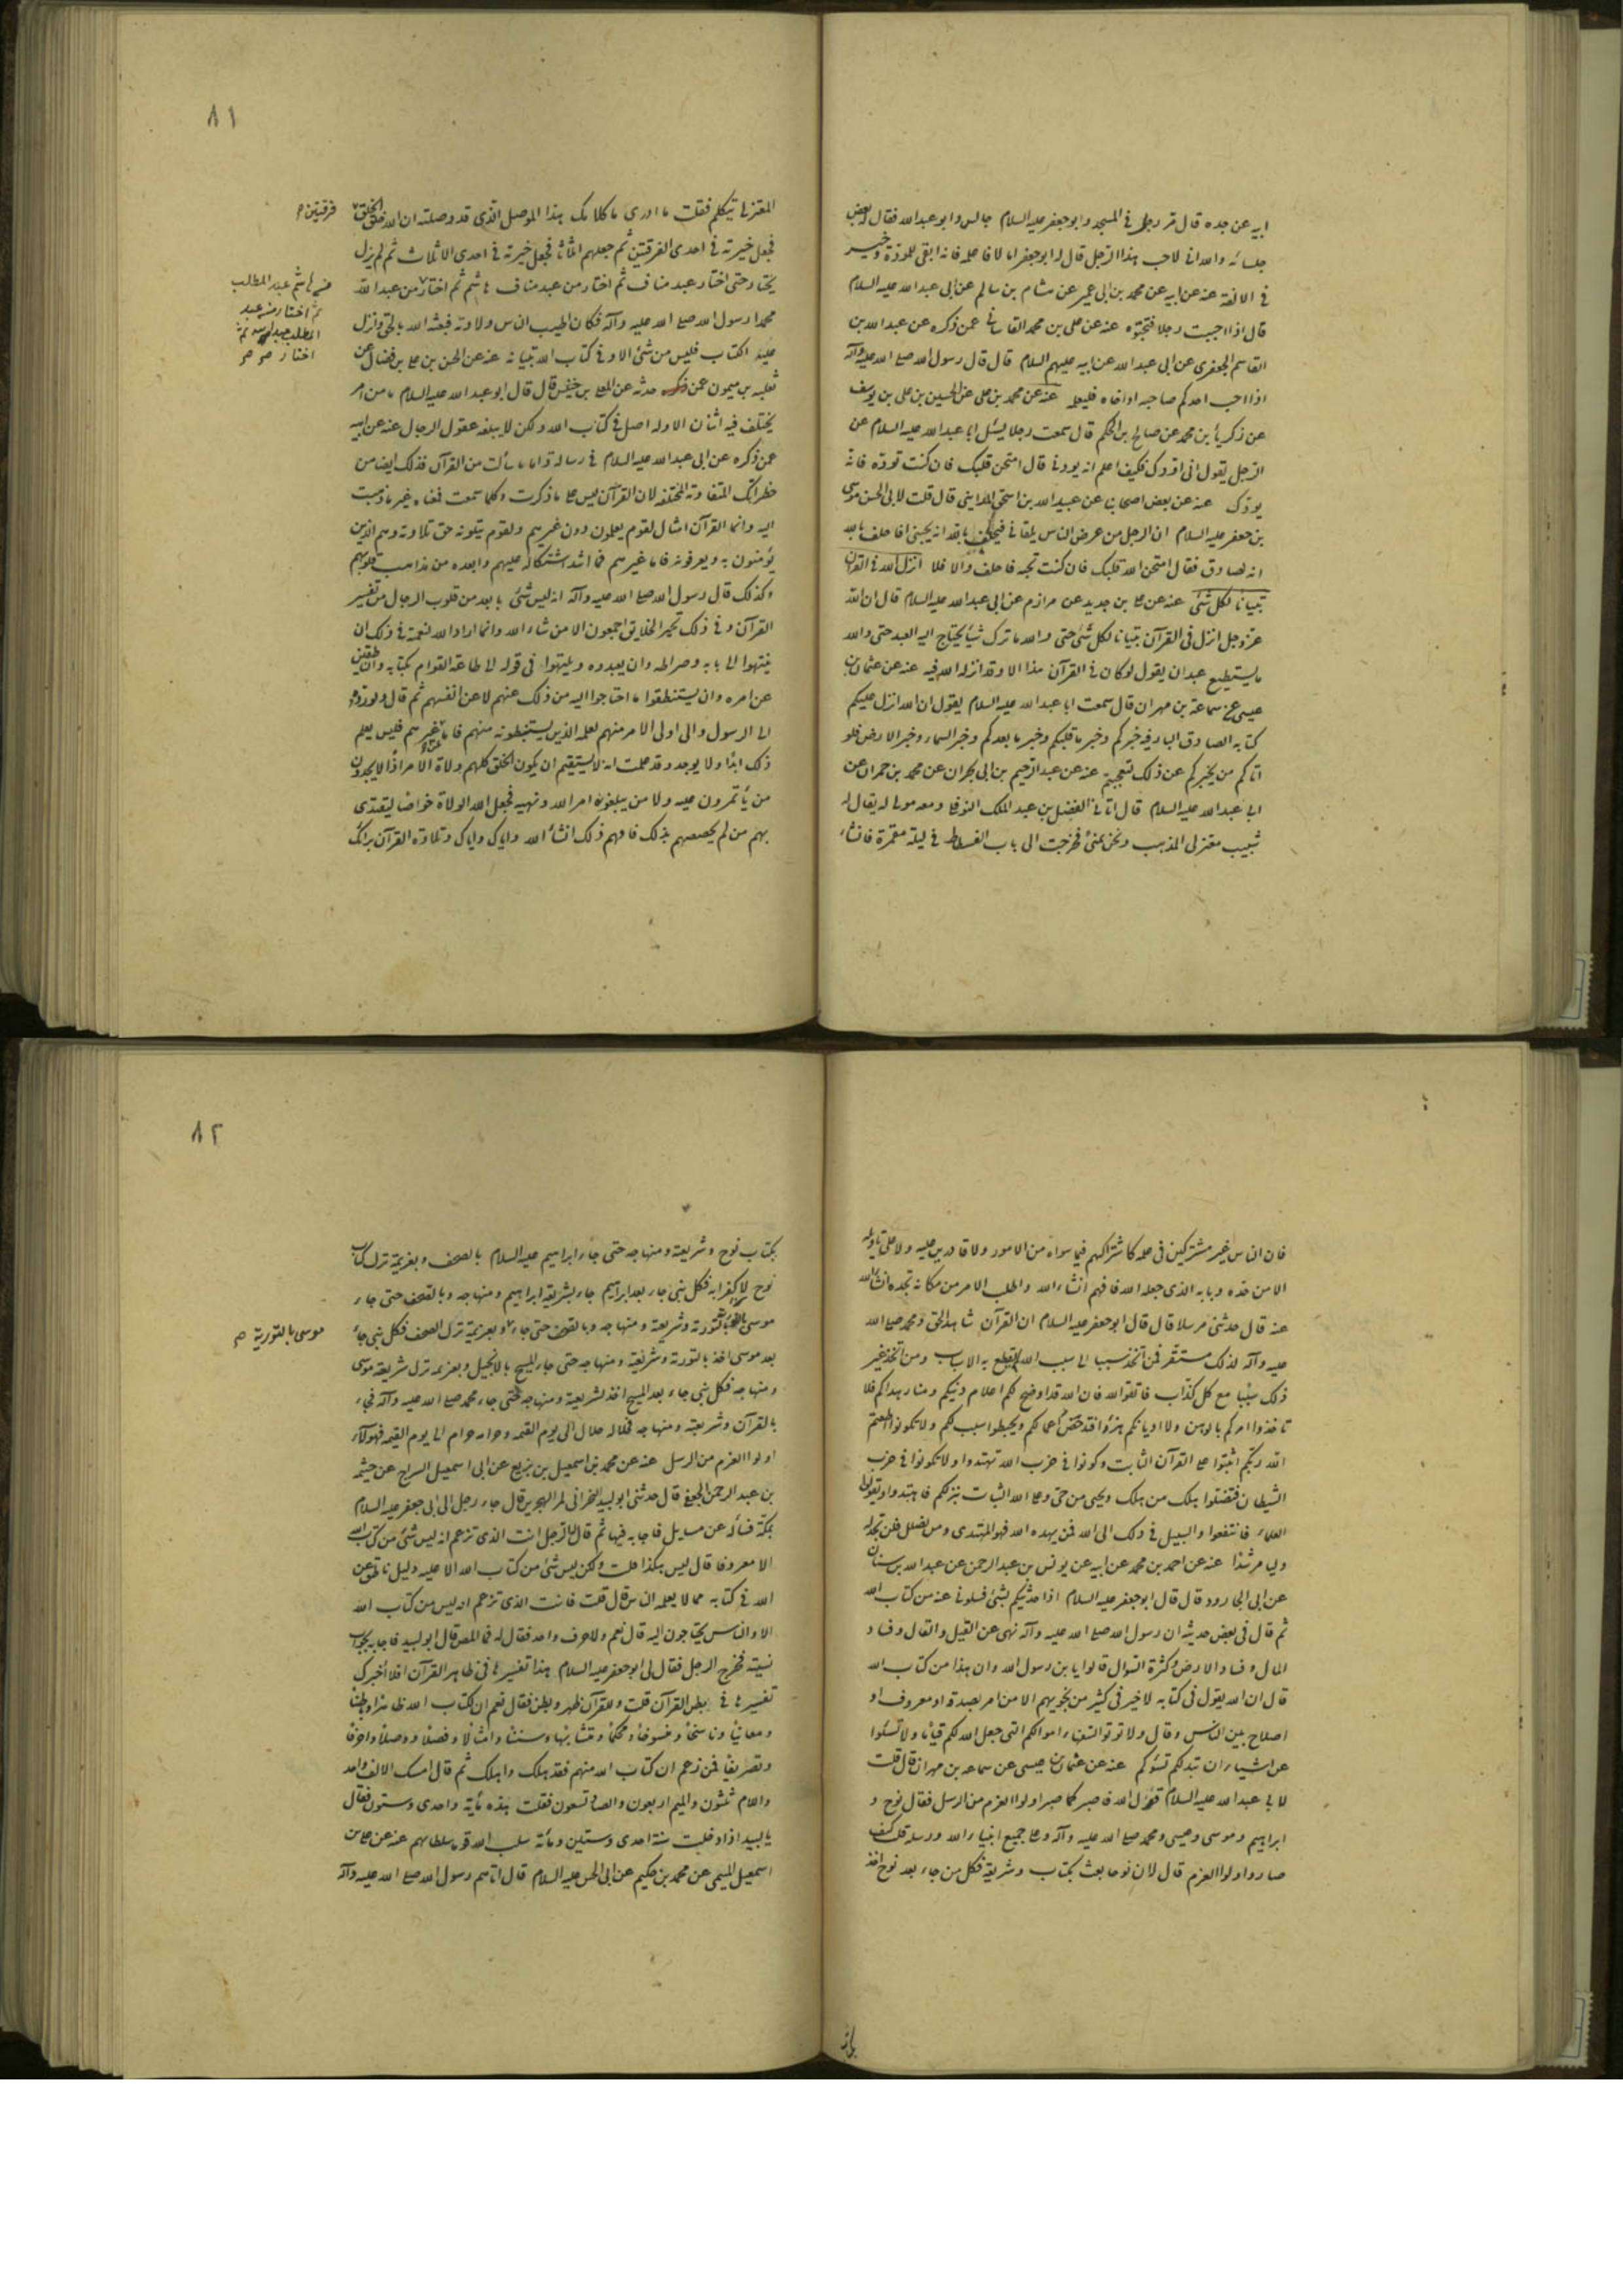 ابيه عن جده قال مر رجل في المسجد وابو جعفر عليه السلام جالس وابو عبد الله فقال له بعض
جلسائه والله اني لاحب هذا الرجل قال له ابو جعفر الا فاعلمه فانه ابقى للمودة وخير
في الالفة عنه عن ابيه عن محمد بن ابي عمير عن هشام بن سالم عن ابي عبد الله عليه السلام
قال اذا احببت رجلا عنه عن علي بن محمد القاساني عمن ذكره عن عبد الله بن
القاسم الجعفري عن ابي عبد الله عن ابيه عليهم السلام قال قال رسول الله صلى الله عليه وآله
اذا احب احدكم صاحبه او اخاه فليعلمه عنه عن محمد بن علي عن الحسين بن علي بن يوسف
عن ذكريا بن محمد عن صالح بن الحكم قال سمعت رجلا يسئل ابا عبد الله عليه السلام عن
الرجل يقول اني اودك فكيف اعلم انه يودني قال امتحن قلبك فان كنت توده فانه
يودك عنه عن بعض اصحابنا عن عبيد الله بن اسحق المدايني قال قلت لابي الحسن موسى
بن جعفر عليه السلام ان الرجل من عرض الناس يلقاني فيحلف بالله انه يحبني افاحلف بالله
انه لصادق فقال امتحن الله قلبك فان كنت تحبه فاحلف والا فلا انزل الله في القرآن
تبيانا لكل شئ عنه عن علي بن حديد عن مرازم عن ابي عبد الله عليه السلام قال ان الله
عز وجل انزل في القرآن تبيانا لكل شئ حتى والله ما ترك شيأ يحتاج اليه العبد حتى والله
ما يستطيع عبد ان يقول لو كان في القرآن هذا الا وقد انزله الله فيه عنه عن عثمان بن
عيسى عن سماعة بن مهران قال سمعت ابا عبد الله عليه السلام يقول ان الله انزل عليكم
كتابه الصادق البار فيه خبركم وخبر ما قبلكم وخبر ما بعدكم وخبر السماء وخبر الارض فلو
اتاكم من يخبركم عن ذلك لتعجبتم عنه عن عبد الرحيم بن ابي نجران عن محمد بن حمران عن
ابي عبد الله عليه السلام قال اتاني الفضل بن عبد الملك النوفلي ومعه مولى له يقال له
شبيب معتزلي المذهب ونحن بمنى فخرجت الى باب الفسطاط في ليلة مقمرة فانشاء
٨١
المعتزلي يتكلم فقلت ما ادري ما كلامك هذا الموصل الذي قد وصلته ان الله خلق الخلق
فرقتين
فجعل خيرته في احدى الفرقتين ثم جعلهم اثلاثا فجعل خيرته في احدى الاثلاث ثم لم يزل
يختار حتى اختار عبد مناف ثم اختار من عبد مناف هاشم ثم اختار من عبد الله
من هاشم عبد المطلب
ثم اختار من عبد
المطلب عبد الله ثم
اختار
محمدا رسول الله صلى الله عليه وآله فكان اطيب الناس ولادته فبعثه الله بالحق وانزل
عليه الكتاب فليس من شئ الا وفي كتاب الله تبيانه عنه عن الحسن بن علي بن فضال عن
ثعلبه بن ميمون عمن حدثه عن المعلى بن خنيس قال قال ابو عبد الله عليه السلام ما من امر
يختلف فيه اثنان الا وله اصل في كتاب الله ولكن لا يبلغه عقول الرجال عنه عن ابيه
عمن ذكره عن ابي عبد الله عليه السلام في رسالة واما ما سألت من القرآن فذلك ايضا من
خطراتك المتفاوته المختلفه لان القرآن ليس على ما ذكرت وكلما سمعت فمعناه غير ما ذهبت
اليه وانما القرآن امثال لقوم يعلمون دون غيرهم ولقوم يتلونه حق تلاوته وهم الذين
يؤمنون به ويعرفونه فاما غيرهم فما اشد اشكاله عليهم وابعده من مذاهب قلوبهم
وكذلك قال رسول الله صلى الله عليه وآله انه ليس شئ بابعد من قلوب الرجال من تفسير
القرآن وفي ذلك تحير الخلايق اجمعون الا من شاء الله وانما اراد الله لنعمة في ذلك ان
ينتهوا الى بابه وصراطه وان يعبدوه وينتهوا في قوله الى طاعة القوام بكتابه والناطقين
عن امره وان يستنطقوا ما احتاجوا اليه من ذلك عنهم لا عن انفسهم ثم قال ولو ردوه
الى الرسول والى اولى الامر منهم لعلمه الذين يستنبطونه منهم فاما غيرهم فليس يعلم
ذلك ابدا ولا يوجد وقد علمت انه لا يستقيم ان يكون الخلق كلهم ولاة الامر اذا لا يجدون
من يأتمرون عليه ولا من يبلغونه امر الله ونهيه فجعل الله الولاة خواصا ليقتدى
بهم من لم يخصصهم بذلك فافهم ذلك انشاء الله واياك واياك وتلاوة القرآن برائك
فان الناس غير مشتركين في علمه كاشتراكهم فيما سواه من الامور ولا قادرين عليه ولا على تاويله
الا من حده وبابه الذي جعله الله فافهم انشاء الله واطلب الامر من مكانه تجده انشاء الله
عنه قال حدثني مرسلا قال قال ابو جعفر عليه السلام ان القرآن شاهد الحق ومحمد صلى الله
عليه وآله لذلك مستقر فمن اتخذ سببا الى سبب الله لم يقطع به الاسباب ومن اتخذ غير
ذلك سببا مع كل كذاب فاتقوا الله فان الله قد اوضح لكم اعلام دينكم ومنار هداكم فلا
تاخذوا امركم بالوهن ولا اديانكم هزؤا فتدحض اعمالكم وتخطوا سبيلكم ولا تكونوا اطعتم
الله ربكم اثبتوا على القرآن الثابت وكونوا في حزب الله تهتدوا ولا تكونوا في حزب
الشيطان فتضلوا يهلك من هلك ويحيى من حي وعلى الله البيان بين لكم فاهتدوا وبقول
العلماء فانتفعوا والسبيل في ذلك الى الله فمن يهده الله فهو المهتدى ومن يضلل فلن تجد له
وليا مرشدا عنه عن احمد بن محمد عن ابيه عن يونس بن عبد الرحمن عن عبد الله بن سنان
عن ابي الجارود قال قال ابو جعفر عليه السلام اذا حدثتكم بشئ فسلوني عنه من كتاب الله
ثم قال في بعض حديثه ان رسول الله صلى الله عليه وآله نهى عن القيل والقال وفساد
المال وفساد الارض وكثرة السؤال قالوا يا بن رسول الله واين هذا من كتاب الله
قال ان الله يقول في كتابه لا خير في كثير من نجويهم الا من امر بصدقة او معروف او
اصلاح بين الناس وقال ولا تؤتوا السفهاء اموالكم التي جعل الله لكم قياما ولا تسئلوا
عن اشياء ان تبد لكم تسؤكم عنه عن عثمان بن عيسى عن سماعه بن مهران قال قلت
لابي عبد الله عليه السلام قول الله فاصبر كما صبر اولوا العزم من الرسل فقال نوح و
ابراهيم وموسى وعيسى ومحمد صلى الله عليه وآله وعلى جميع انبياء الله ورسله قلت كيف
صاروا اولوا العزم قال لان نوحا بعث بكتاب وشريعة فكل من جاء بعد نوح اخذ
٨٢
بكتاب نوح وشريعته ومنهاجه حتى جاء ابراهيم عليه السلام بالصحف وبعزيمة ترك كتاب
نوح لا كفرا به فكل نبي جاء بعد ابراهيم جاء بشريعة ابراهيم ومنهاجه وبالصحف حتى جاء
موسى بالتورية وشريعته ومنهاجه وبعزيمة ترك الصحف فكل نبي جاء
موسى بالتورية
بعد موسى اخذ بالتورية وشريعته ومنهاجه حتى جاء المسيح بالانجيل وبعزيمة ترك شريعة موسى
ومنهاجه فكل نبي جاء بعد المسيح اخذ بشريعته ومنهاجه حتى جاء محمد صلى الله عليه وآله فجاء
بالقرآن وشريعته ومنهاجه فحلاله حلال الى يوم القيمه وحرامه حرام الى يوم القيمه فهؤلاء
اولوا العزم من الرسل عنه عن محمد بن اسمعيل بن بزيع عن ابي اسمعيل السراج عن خيثمه
بن عبد الرحمن الجعفي قال حدثني ابو لبيد البحراني المراء الهجرين قال جاء رجل الى ابي جعفر عليه السلام
بمكة فسأله عن مسايل فاجابه فيها ثم قال له الرجل انت الذي تزعم انه ليس شئ من كتاب الله
الا معروف قال ليس هكذا قلت ولكن ليس شئ من كتاب الله الا عليه دليل ناطق عن
الله في كتابه مما لا يعلمه الناس قال قلت فانت الذي تزعم انه ليس من كتاب الله
الا والناس يحتاجون اليه قال نعم ولا حرف واحد فقال له فما المص قال ابو لبيد فاجابه بجواب
نسيته فخرج الرجل فقال لي ابو جعفر عليه السلام هذا تفسيرها في ظاهر القرآن افلا اخبرك
تفسيرها في بطن القرآن قلت وللقرآن بطن وظهر فقال نعم ان لكتاب الله ظاهرا وباطنا
ومعاينا وناسخا ومنسوخا ومحكما ومتشابها وسننا وامثالا وفصلا ووصلا واحرفا
وتصريفا فمن زعم ان كتاب الله مبهم فقد هلك واهلك ثم قال امسك الالف واحد
واللام ثلثون والميم اربعون والصاد تسعون فقلت فهذه مأية واحدى وستون فقال
يا لبيد اذا دخلت سنة احدى وستين ومأة سلب الله قوما سلطانهم عنه عن علي بن
اسمعيل الميثمي عن محمد بن حكيم عن ابي الحسن عليه السلام قال اتاهم رسول الله صلى الله عليه وآله